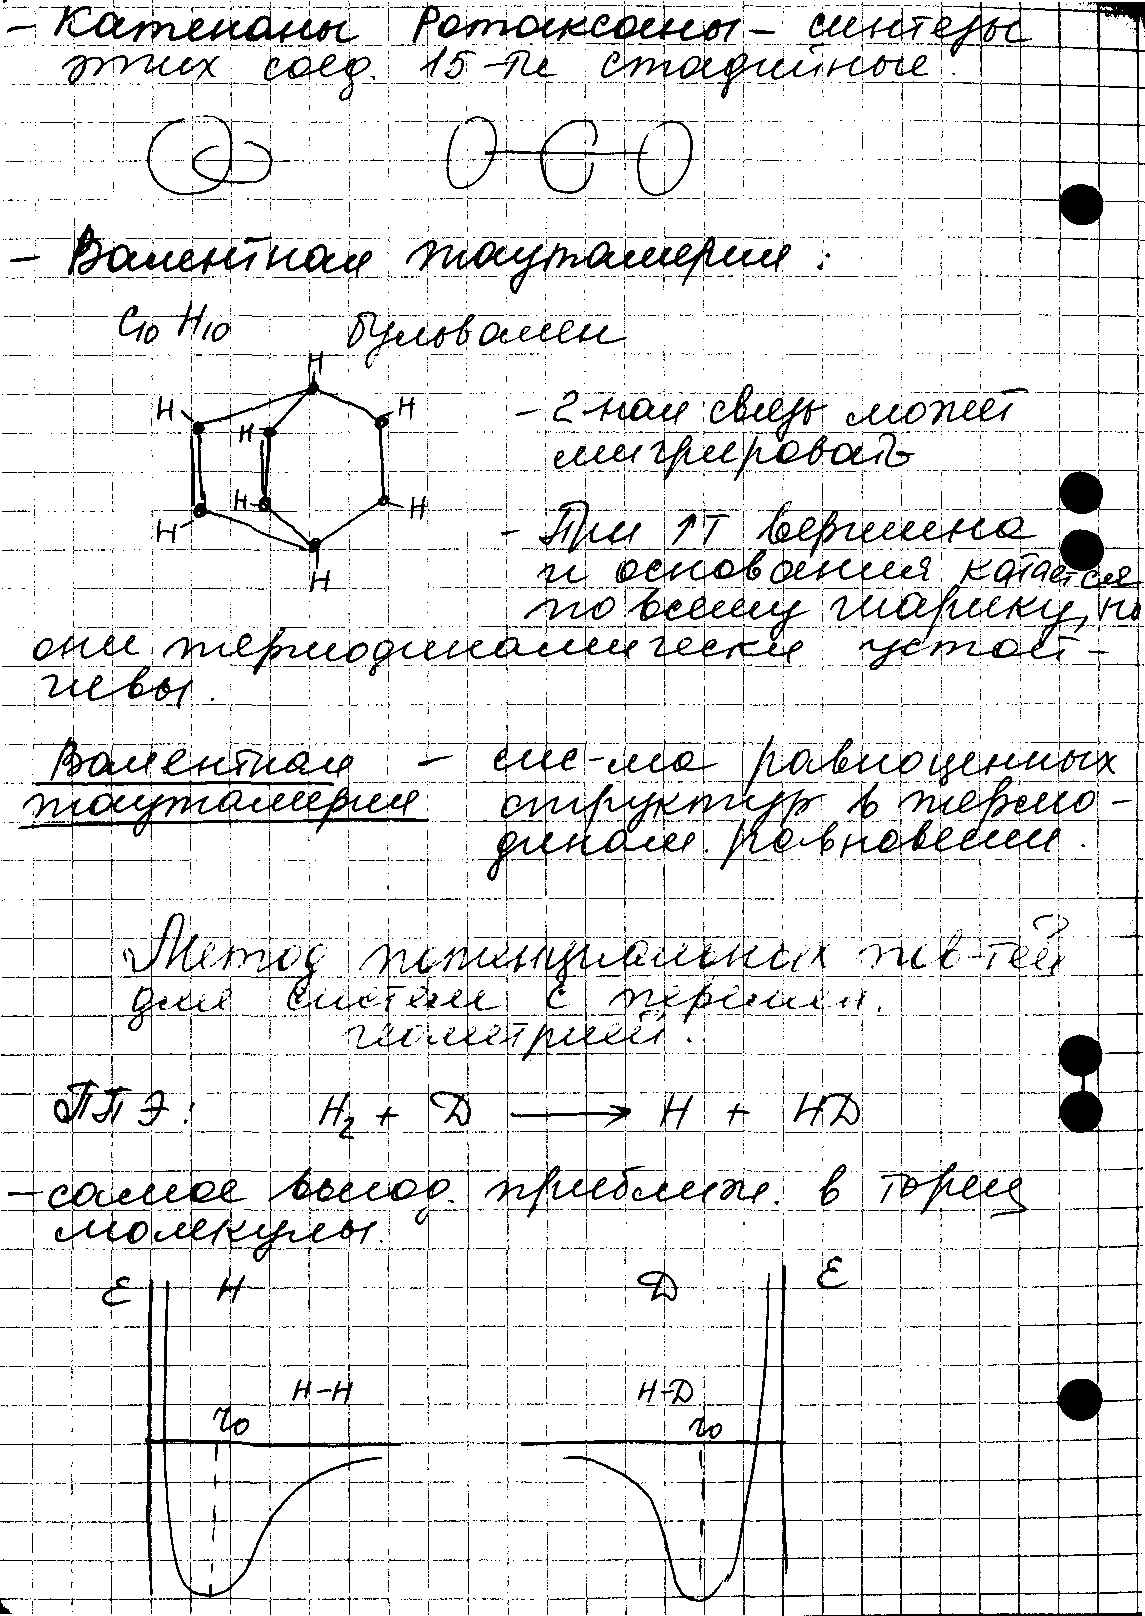 - Катенаны Ротаксаны - синтезы
этих соед. 15-ти стадийные.
- Валентная таутомерия:
C10 H10 бульвален
H
H
H
H
H
H
H
H
- 2-ная связь может
мигрировать
- При ↑T вершина
и основания катается
по всему шарику, но
они термодинамически устой-
чивы.
Валентная - сис-ма равноценных
таутамерия структур в термо-
динам. равновесии.
Метод потенциальных пов-тей
для систем с перемен.
геометрией.
ППЭ: H2 + D ⟶ H + HD
- самое выгод. приближ. в торец
молекулы.
E H D E
H-H H-D
r0 r0